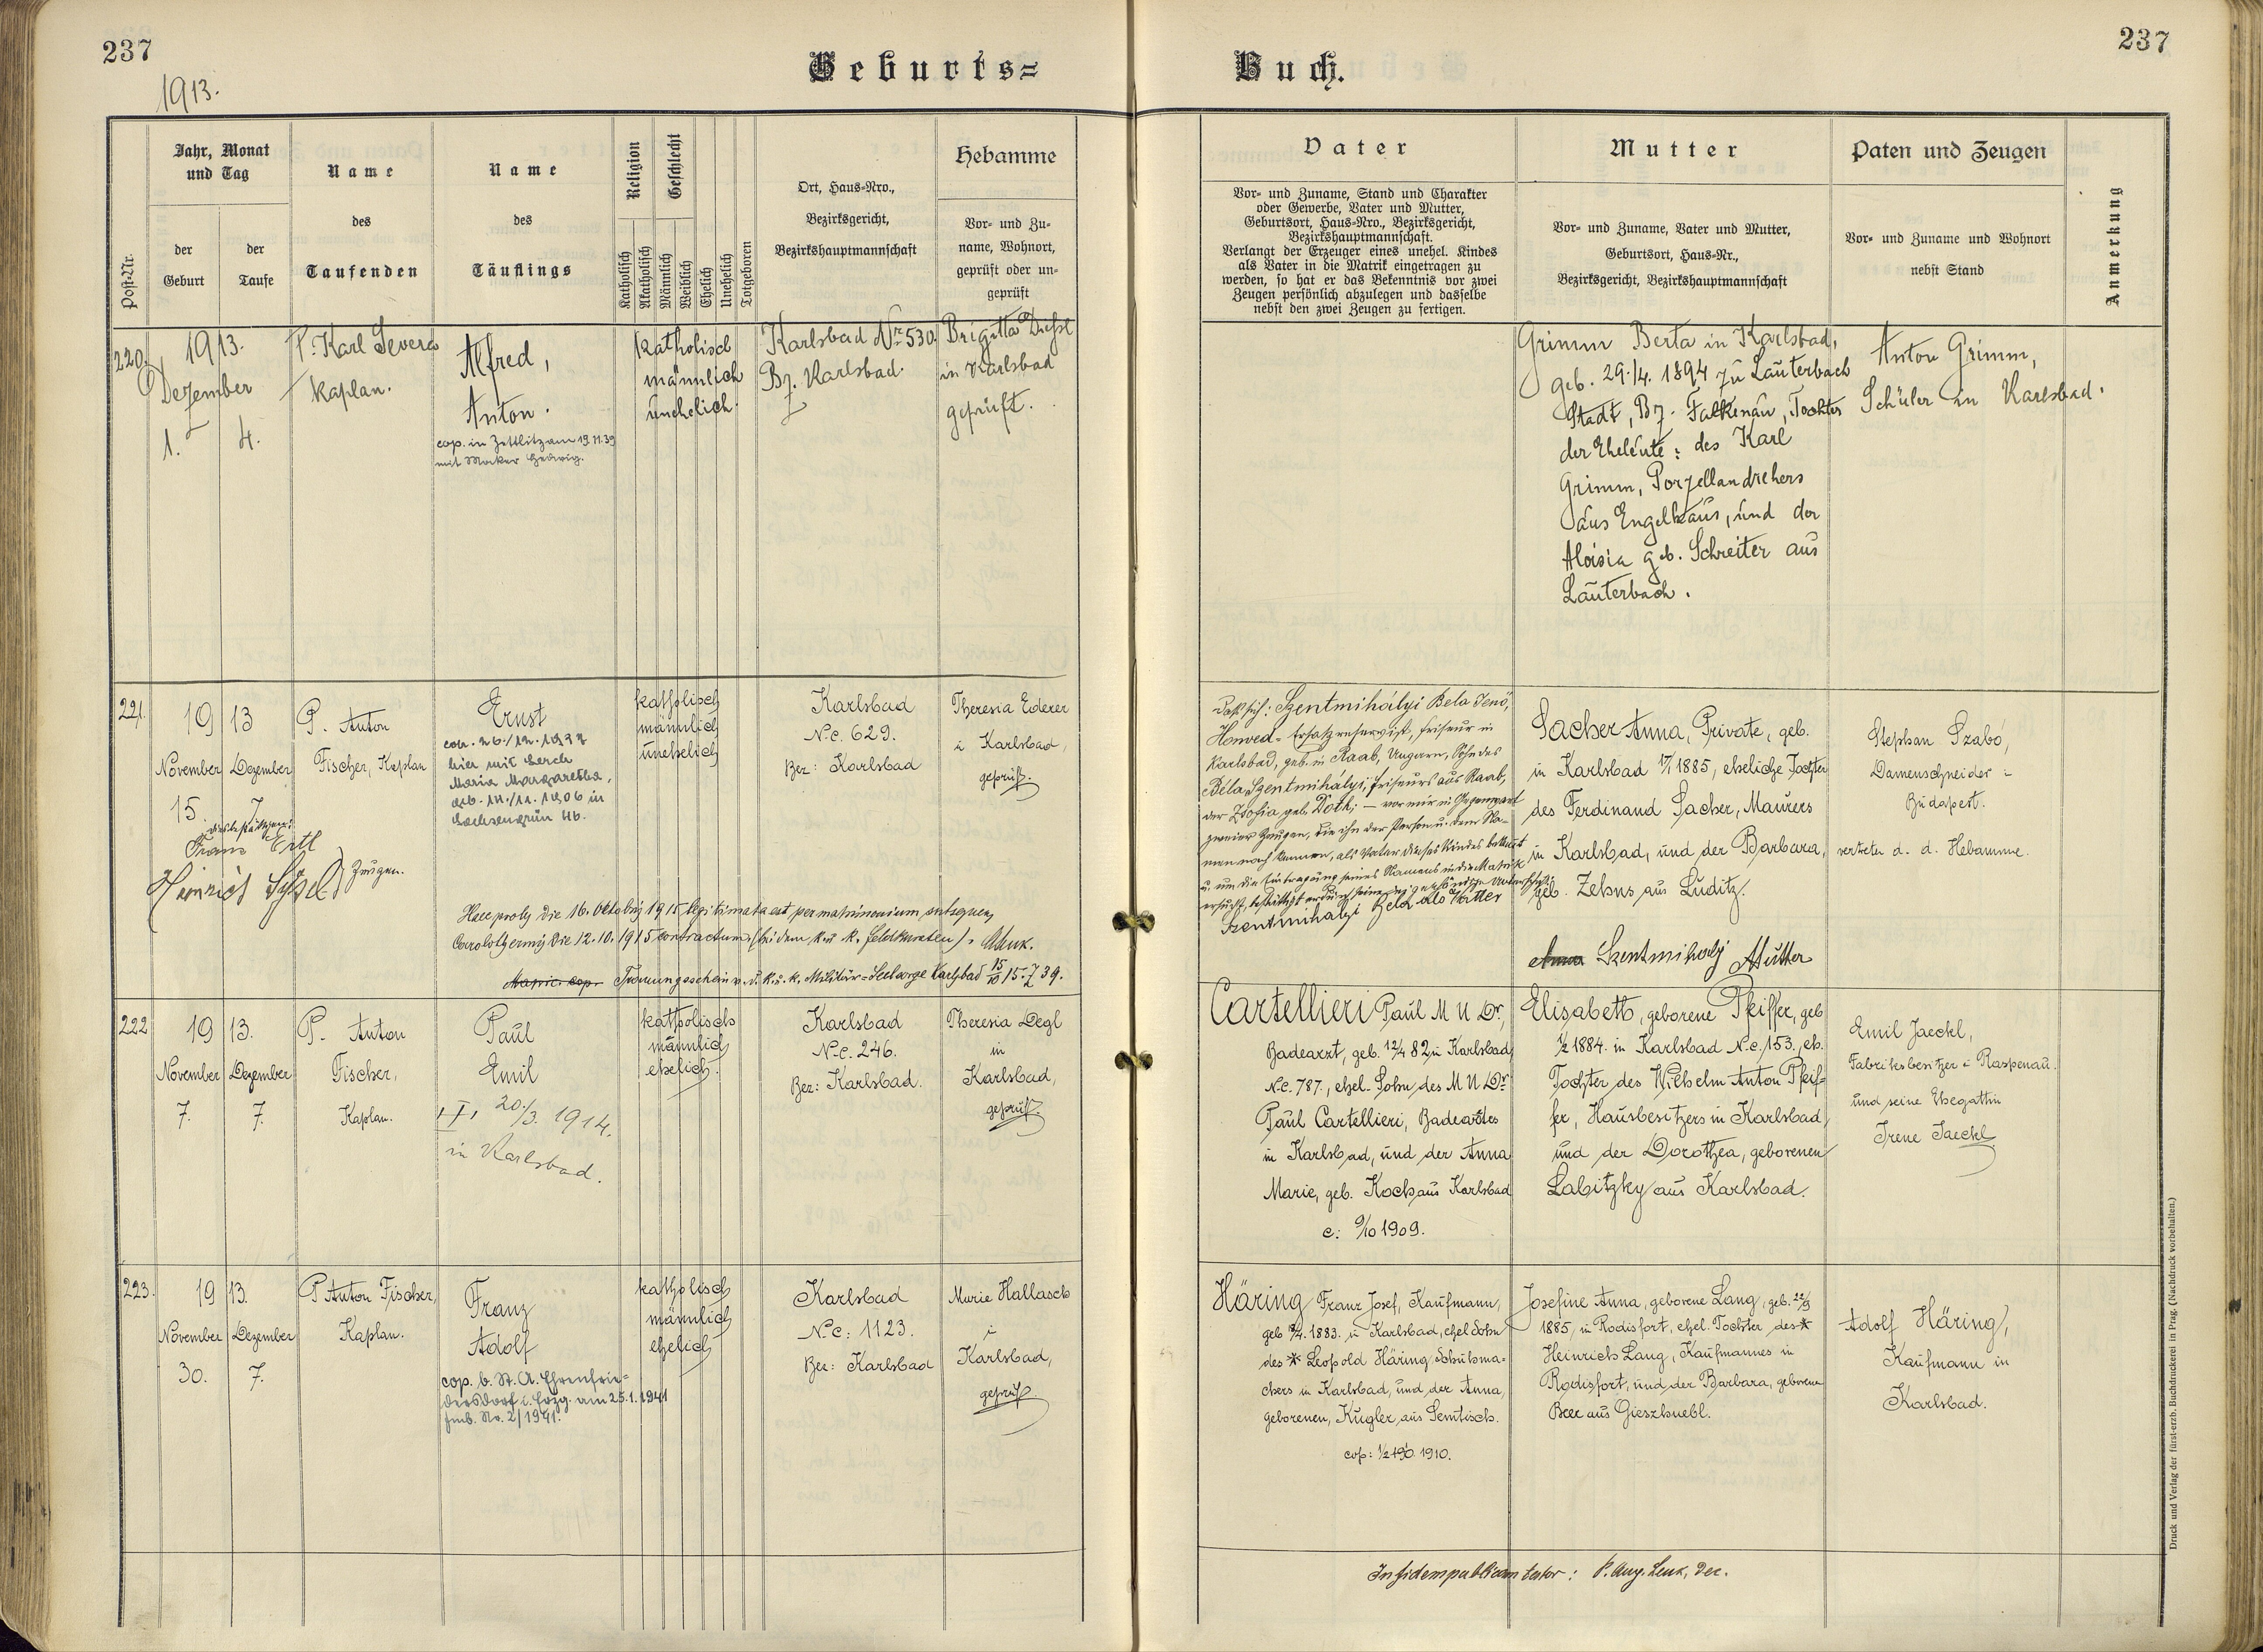 237
1913.
Geburts=
Buch.
237
Post-Nr.
Jahr, Monat
und Tag
der
Geburt
der
Taufe
Name
des
Taufenden
Name
des
Täuflings
Religion
Geschlecht
Katholisch
Akatholisch
Männlich
Weiblich
Ehelich
Unehelich
Totgeboren
Ort, Haus=Nro.,
Bezirksgericht,
Bezirkshauptmannschaft
Hebamme
Vor= und Zu=
name, Wohnort,
geprüft oder un=
geprüft
Vater
Vor= und Zuname, Stand und Charakter
oder Gewerbe, Vater und Mutter,
Geburtsort, Haus=Nro., Bezirksgericht,
Bezirkshauptmannschaft.
Verlangt der Erzeuger eines unehel. Kindes
als Vater in die Matrik eingetragen zu
werden, so hat er das Bekenntnis vor zwei
Zeugen persönlich abzulegen und dasselbe
nebst den zwei Zeugen zu fertigen.
Mutter
Vor= und Zuname, Vater und Mutter,
Geburtsort, Haus=Nr.,
Bezirksgericht, Bezirkshauptmannschaft
Paten und Zeugen
Vor= und Zuname und Wohnort
nebst Stand
Anmerkung
220.
1913.
Dezember
1.
4.
P. Karl Severa
Kaplan.
Alfred,
Anton.
cop. in Zettlitz am 19.11.39
mit Macker Hedwig.
katholisch
männlich
unehelich.
Karlsbad Nr. 530
Bz. Karlsbad.
Brigitta
in Karlsbad
geprüft.
Grimm Berta in Karlsbad,
geb. 29./4. 1894 zu Lauterbach
Stadt, Bz. Falkenau, Tochter
der Eheleute: des Karl
Grimm, Porzellandrehers
aus Engelhaus, und der
Aloisia geb. Schreiter aus
Lauterbach.
Anton Grimm,
Schüler in Karlsbad.
221.
19 13
November
15.
Dezember
7.
P. Anton
Fischer, Kaplan
Ernst
hier mit Lerch
Maria Margaretha,
geb. 14./11. 1906 in
Sachsengrün 46.
katholisch
männlich
unehelich
Karlsbad
N.c. 629.
Bez: Karlsbad
Theresia Ederer
i Karlsbad,
geprüft.
Franz Ertl
Heinrich
Zeugen.
Haec proles die 16. Oktobris 1915 legitimata est per matrimonium subsequens
die 12.10.1915 contractum. (bei dem k.u k. Feldkuraten).
Trauungsschein v. d. k. u. k. Militär=Seelsorge Karlsbad 15/10 15. Z 39.
Daß sich: Szentmihályi Bela Jenö,
Honved=Ersatzreservist, Friseur in
Karlsbad, geb. in Raab, Ungarn, Sohn des
Béla Szentmihályi, Friseurs aus Raab,
der Zsofia geb. Doth; — vor mir in Gegenwart
zweier Zeugen, die ihn der Person u. dem Na=
men nach kennen, als Vater dieses Kindes bekennt
u. um die Eintragung seines Namens in die Matrik
ersucht, bestätigt er durch seine eigenhändige Unterschrift:
Szentmihalyi Bela als Vatter
Sacher Anna, Private, geb.
in Karlsbad 1885, eheliche Tochter
des Ferdinand Sacher, Maurers
in Karlsbad, und der Barbara,
geb. Zehns aus Luditz.
Szentmihalyi Mutter
Stephan Szabó,
Damenschneider i
Budapest.
vertreten d. d. Hebamme.
222
19 13.
November
7.
Dezember
7.
P. Anton
Fischer,
Kaplan.
Paul
Emil
20./3. 1914.
in Karlsbad.
katholisch
männlich
ehelich.
Karlsbad
N.c. 246.
Bez: Karlsbad.
Theresia Degl
in
Karlsbad,
geprüft.
Cartellieri Paul M U Dr,
Badearzt, geb. 12/4 82 in Karlsbad
N.c. 787., ehel. Sohn des M U Dr
Paul Cartellieri, Badearztes
in Karlsbad, und der Anna
Marie, geb. Koch aus Karlsbad
c: 9/10 1909.
Elisabeth, geborene Pfeiffer, geb
1/2 1884. in Karlsbad N.c. 153., eh.
Tochter des Wilhelm Anton Pfeif=
fer, Hausbesitzers in Karlsbad,
und der Dorothea, geborenen
Labitzky aus Karlsbad.
Emil Jaeckl,
Fabriksbesitzer i Raspenau.
und seine Ehegattin
Irene Jaeckl
223.
19 13.
November
30.
Dezember
7.
P Anton Fischer,
Kaplan.
Franz
Adolf
cop. b. St. A. Ehrenfrie=
dersdorf i. Erzg. am 25.1.1941
Fmb. No. 2/1941.
katholisch
männlich
ehelich
Karlsbad
N.c: 1123.
Bez: Karlsbad
Marie Hallasch
i
Karlsbad,
geprüft.
Häring Franz Josef, Kaufmann,
1883. in Karlsbad, ehel Sohn
des * Leopold Häring Schuhma=
chers in Karlsbad, und der Anna,
geborenen, Kugler, aus Semtisch.
1910.
Josefine Anna, geborene Lang, geb. 22/9
1885, in Rodisfort, ehel. Tochter des *
Heinrich Lang, Kaufmannes in
Rodisfort, und der Barbara, geborene
Beer aus Gieszhuebl.
Adolf Häring,
Kaufmann in
Karlsbad.
In fidem publicam testor: P. Aug. Lenk, Dec.
Druck und Verlag der fürst-erzb. Buchdruckerei in Prag. (Nachdruck vorbehalten.)